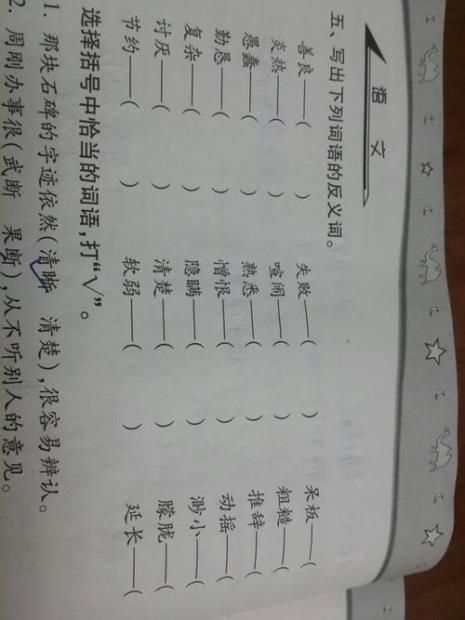 语文
五、写出下列词语的反义词。
善良——(　　) 失败——(　　) 呆板——(
炎热——(　　) 喧闹——(　　) 粗糙——(
愚蠢——(　　) 熟悉——(　　) 推辞——(
勤恳——(　　) 憎恨——(　　) 动摇——(
复杂——(　　) 隐瞒——(　　) 渺小——(
讨厌——(　　) 清楚——(　　) 朦胧——(
节约——(　　) 软弱——(　　) 延长——(
选择括号中恰当的词语,打“√”。
1. 那块石碑的字迹依然(清晰 清楚),很容易辨认。
2. 周刚办事很(武断 果断),从不听别人的意见。